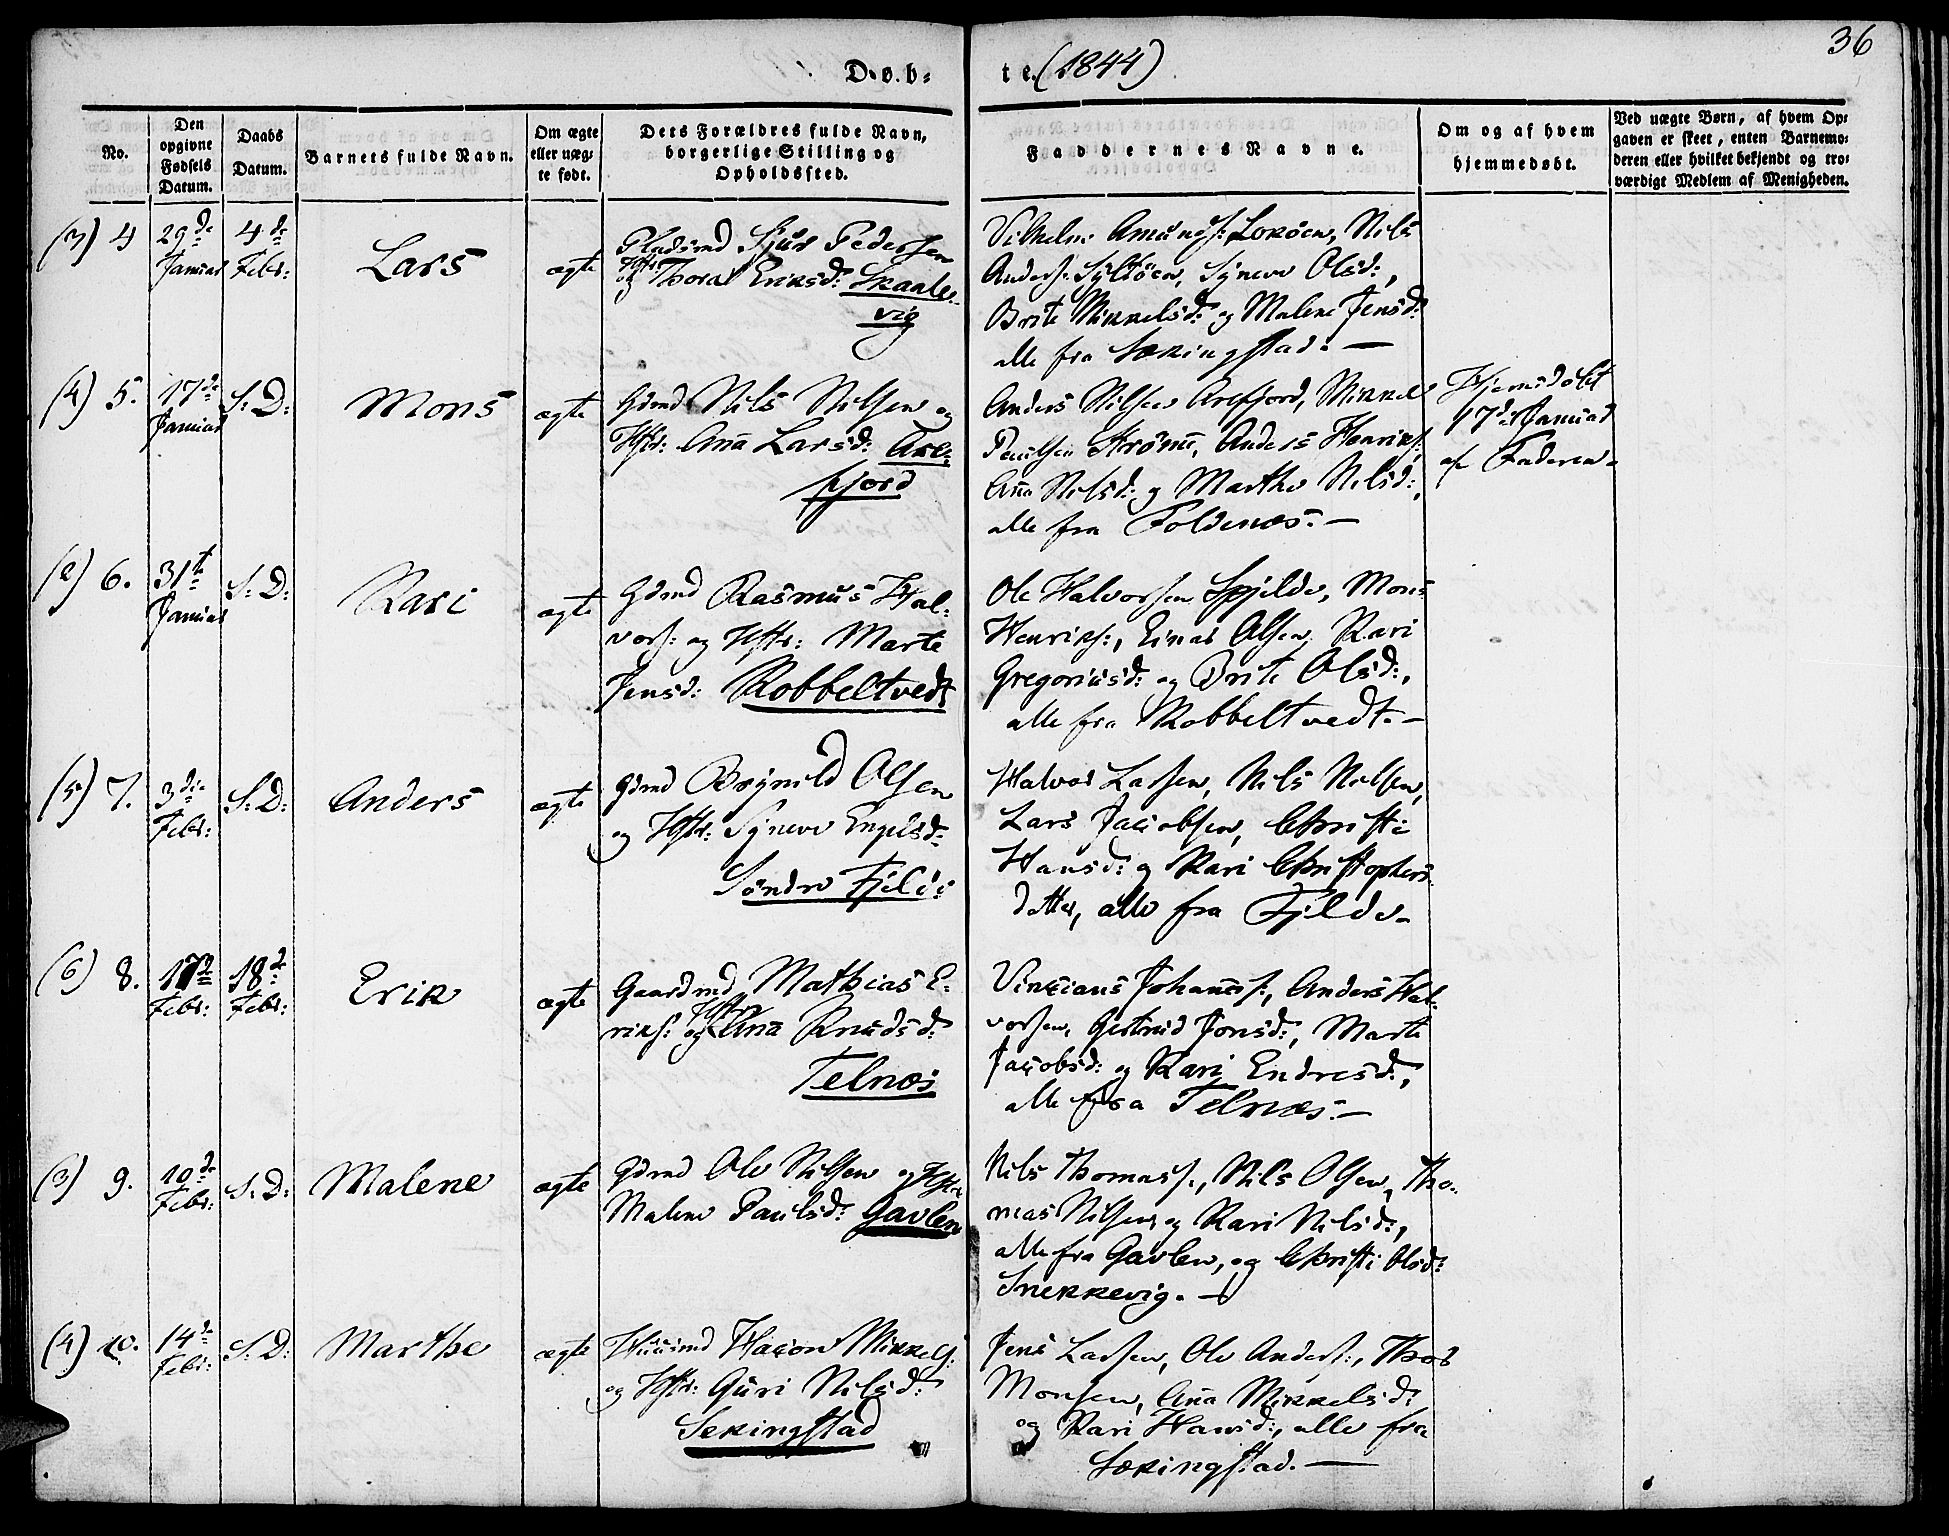 36
D. ø. b= t e. (1844)
No.
Den opgivne Fødsels Datum.
Daabs Datum.
Barnets fulde Navn.
Om ægte eller uæg= te født.
Dets Forældres fulde Navn, borgerlige Stilling og Opholdssted.
Faddernes Navne.
Om og af hvem hjemmedøbt.
Ved uægte Børn, af hvem Op=
gaven er skeet, enten Barnemo=
deren eller hvilket bekjendt og tro=
værdigt Medlem af Menigheden.
(3) 4 29de Januar 4de Febr: Lars ægte
Pladsmd Sjur Pedersen
og Hstr: Thora Eriksd: Skaale=
vig
Vilhelm Amunds: Lokøen, Nils
Anders: Syltøen, Syneve Olsd:,
Brite Mikkelsd: og Malene Jensd:
alle fra Sækingstad. —
(4) 5. 17de Januar S: D: Mons ægte
Gdmd Nils Nilsen og
Hstr: Ana Larsd: Are=
fjord
Anders Nilsen Arefjord, Mikkel
Paulsen Strömme, Anders Henriks:
Ana Nilsd: og Marthe Nilsd:,
alle fra Foldenæs. —
Hjemdøbt
17de Januar
af Faderen.
(2) 6. 31te Januar S: D: Kari ægte
Gdmd Rasmus Hal=
vors: og Hstr: Marte
Jensd: Kobbeltvedt
Ole Halvorsen Spjelde, Mons
Henriks:, Einar Olsen, Kari
Gregoriusd: og Brite Olsd:,
alle fra Kobbeltvedt. —
(5) 7. 3die Febr: S: D: Anders ægte
Gdmd Brynild Olsen
og Hstr: Syneve Engelsd:
Søndre Fjeld:
Halvor Larsen, Nils Nilsen,
Lars Jacobsen, Christi
Hansd: og Kari Christophers=
datter, alle fra Fjelde.
(6) 8. 17de Febr: 18de Febr: Erik ægte
Gaardmd Mathias E=
riks: og Hstr: Ana Knudsd:
Telnæs
Vinsians Johannes:, Anders Hal=
vorsen, Gertrud Jonsd:, Marte
Jacobsd: og Kari Endresd:,
alle fra Telnæs. —
(3) 9. 10de Febr: S: D: Malene ægte
Gdmd Ole Nilsen og Hstr:
Malene Paulsd: Gavlen
Nils Thomass:, Nils Olsen, Tho=
mas Nilsen, og Kari Nilsd:,
alle fra Gavlen, og Christi Olsd:
Snekkevig. —
(4) 10. 14de Febr: S: D: Marthe ægte
Huusmd Hacon Mikkels:
og Hstr: Guri Nilsd:
Sekingstad
Jens Larsen, Ole Anders:, Thor
Monsen, Ana Mikkelsd:
og Kari Hansd:, alle fra
Sækingstad. —